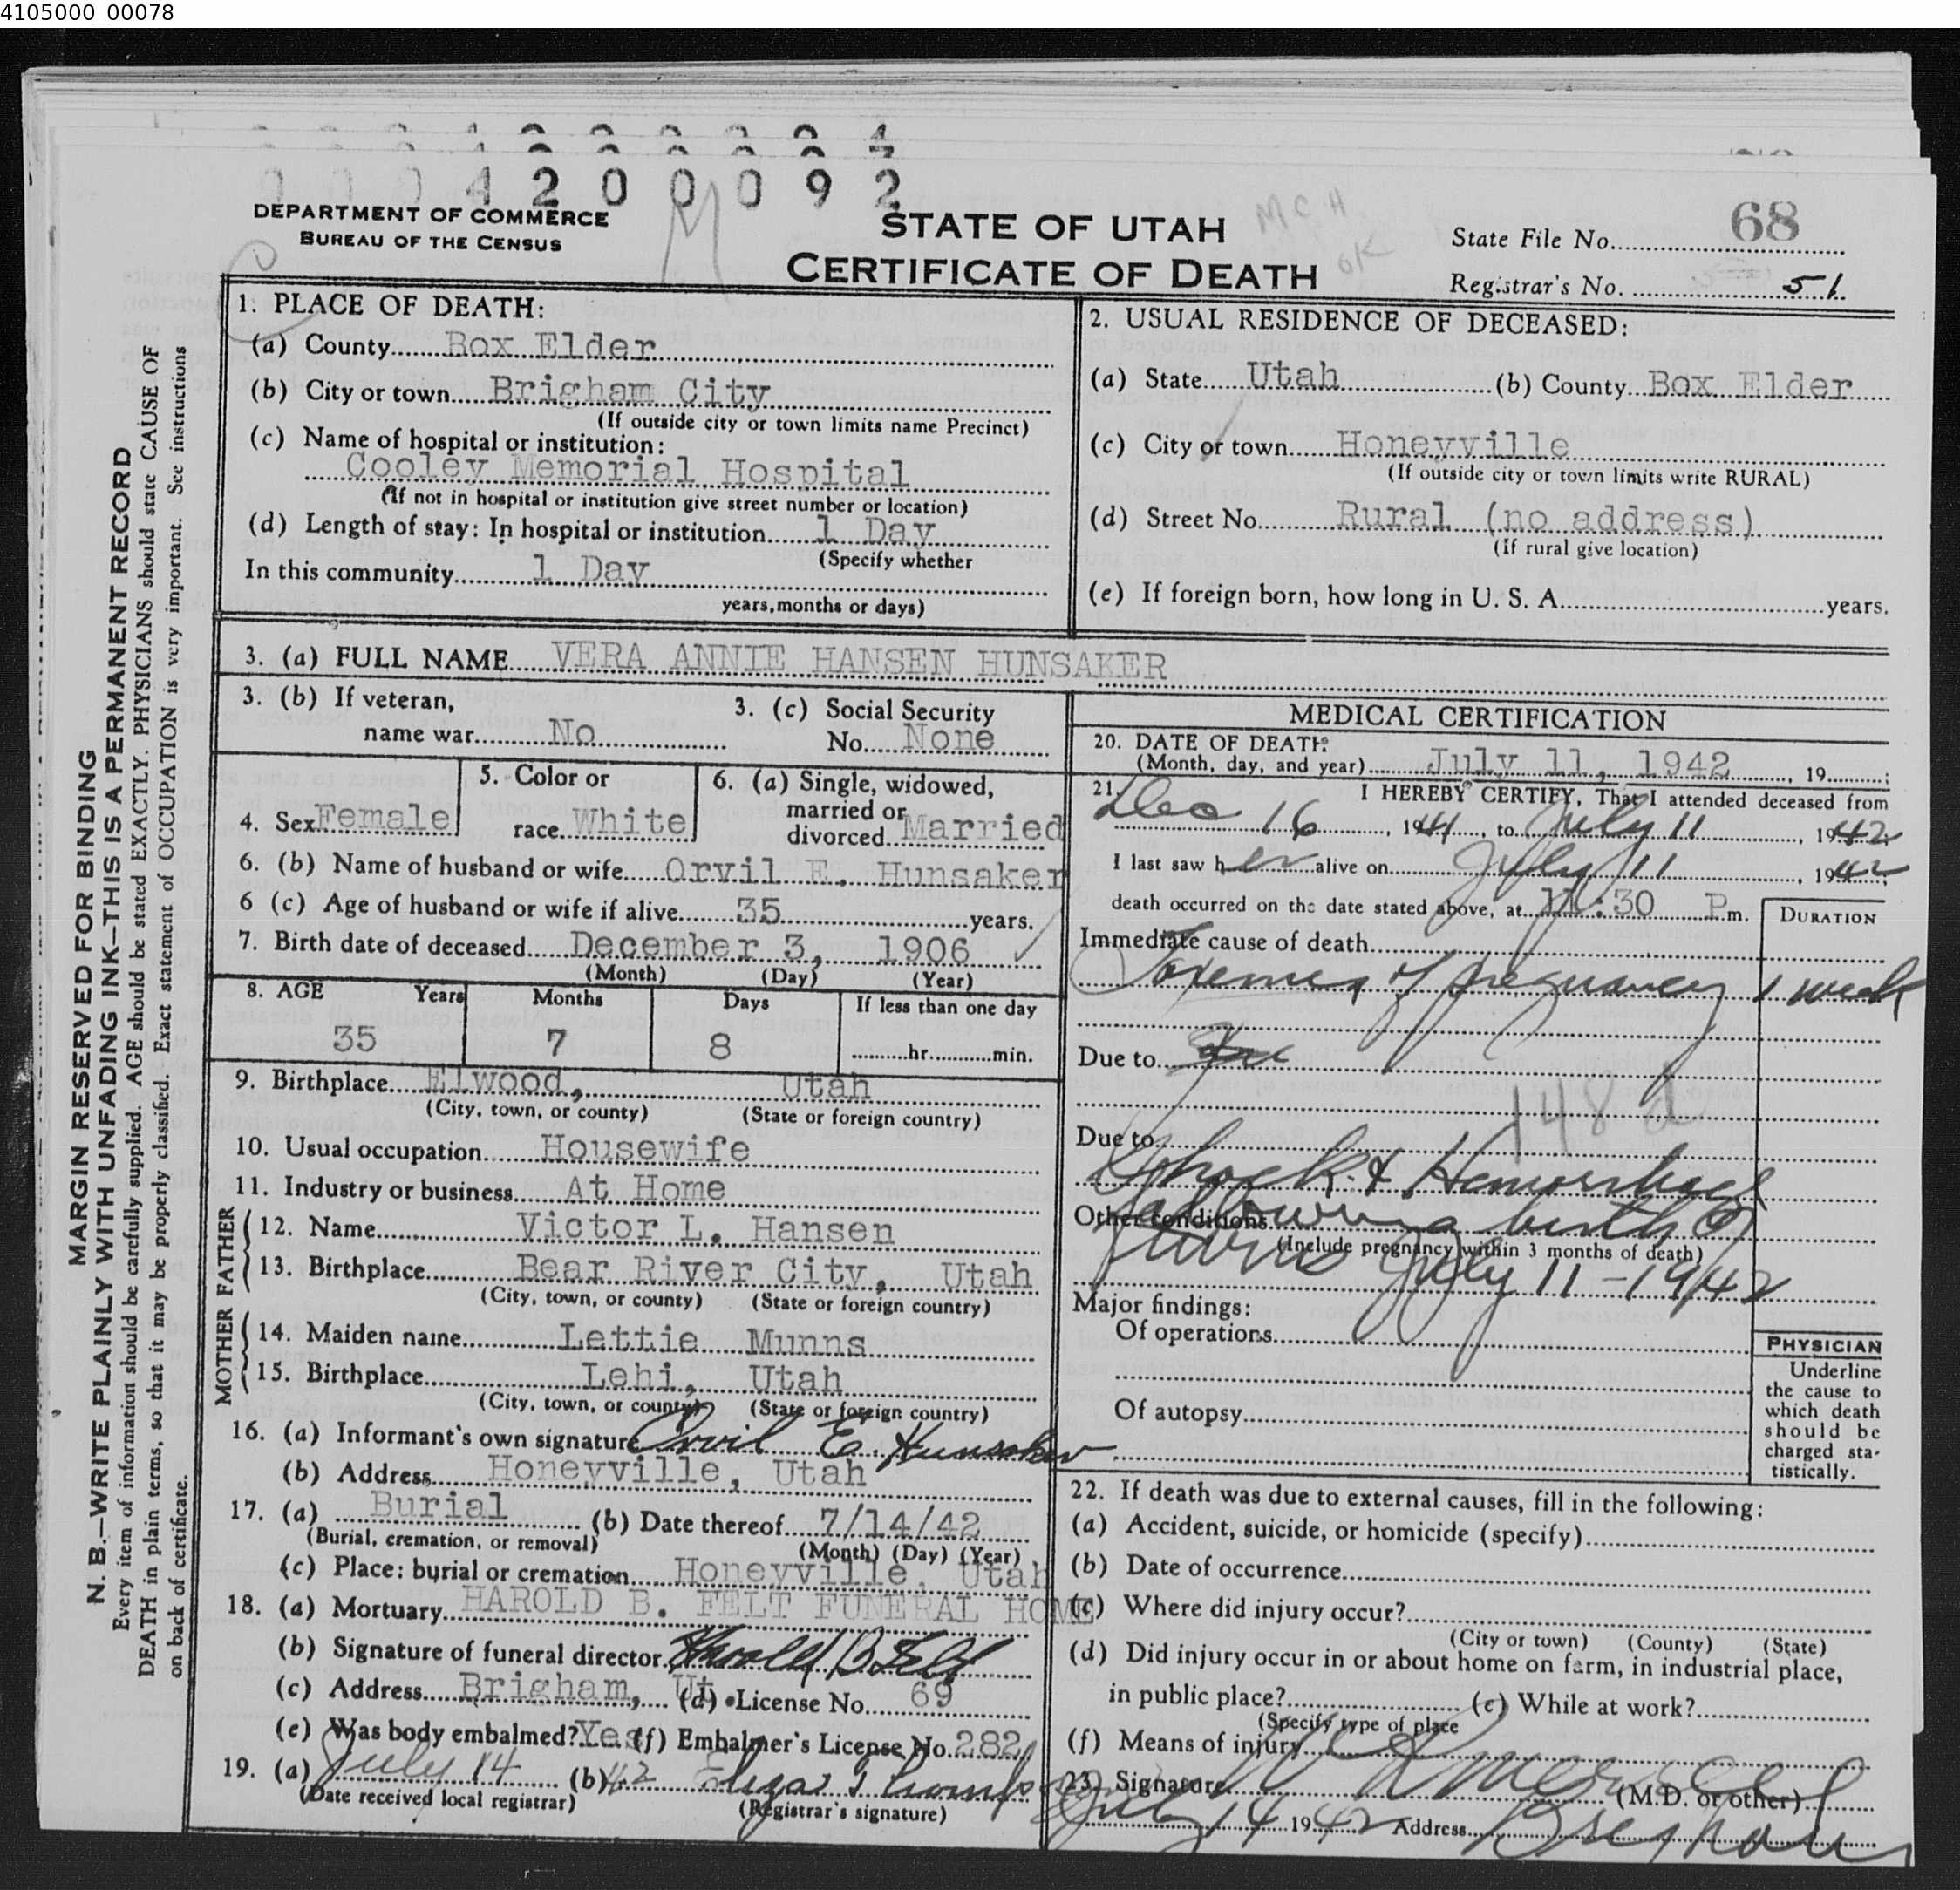 4105000_00078
0 0 0 4 2 0 0 0 9 2
DEPARTMENT OF COMMERCE
BUREAU OF THE CENSUS
M
STATE OF UTAH
CERTIFICATE OF DEATH
M C H
OK
State File No. 68
Registrar's No. 51.
MARGIN RESERVED FOR BINDING
N. B.—WRITE PLAINLY WITH UNFADING INK—THIS IS A PERMANENT RECORD
Every item of information should be carefully supplied. AGE should be stated EXACTLY. PHYSICIANS should state CAUSE OF
DEATH in plain terms, so that it may be properly classified. Exact statement of OCCUPATION is very important. See instructions
on back of certificate.
1. PLACE OF DEATH:
(a) County Box Elder
(b) City or town Brigham City
(If outside city or town limits name Precinct)
(c) Name of hospital or institution:
Cooley Memorial Hospital
(If not in hospital or institution give street number or location)
(d) Length of stay: In hospital or institution 1 Day
(Specify whether
In this community 1 Day
years, months or days)
2. USUAL RESIDENCE OF DECEASED:
(a) State Utah (b) County Box Elder
(c) City or town Honeyville
(If outside city or town limits write RURAL)
(d) Street No. Rural (no address)
(If rural give location)
(e) If foreign born, how long in U. S. A. years.
3. (a) FULL NAME VERA ANNIE HANSEN HUNSAKER
3. (b) If veteran,
name war No
3. (c) Social Security
No. None
4. Sex Female
5. Color or
race White
6. (a) Single, widowed,
married or
divorced Married
6. (b) Name of husband or wife Orvil E. Hunsaker
6 (c) Age of husband or wife if alive 35 years.
7. Birth date of deceased December 3, 1906
(Month) (Day) (Year)
8. AGE Years Months Days If less than one day
35 7 8 hr. min.
9. Birthplace Elwood, Utah
(City, town, or county) (State or foreign country)
10. Usual occupation Housewife
11. Industry or business At Home
FATHER
12. Name Victor L. Hansen
13. Birthplace Bear River City, Utah
(City, town, or county) (State or foreign country)
MOTHER
14. Maiden name Lettie Munns
15. Birthplace Lehi, Utah
(City, town, or county) (State or foreign country)
16. (a) Informant's own signature Orvil E. Hunsaker
(b) Address Honeyville, Utah
17. (a) Burial (b) Date thereof 7/14/42
(Burial, cremation, or removal) (Month) (Day) (Year)
(c) Place: burial or cremation Honeyville, Utah
18. (a) Mortuary HAROLD B. FELT FUNERAL HOME
(b) Signature of funeral director Harold B Felt
(c) Address Brigham, Ut. (d) License No. 69
(e) Was body embalmed? Yes (f) Embalmer's License No. 282
19. (a) July 14 (b) 42 Eliza
(Date received local registrar) (Registrar's signature)
MEDICAL CERTIFICATION
20. DATE OF DEATH:
(Month, day, and year) July 11, 1942, 19 ;
21. I HEREBY CERTIFY, That I attended deceased from
Dec 16, 1941, to July 11, 1942;
I last saw her alive on July 11, 1942;
death occurred on the date stated above, at 11:30 P.m.
DURATION
Immediate cause of death
Toxemia of pregnancy 1 week
Due to
148 a
Due to
Shock & Hemorrhage
following birth of
Other conditions
(Include pregnancy within 3 months of death)
twins July 11-1942
Major findings:
Of operations
Of autopsy
PHYSICIAN
Underline
the cause to
which death
should be
charged sta-
tistically.
22. If death was due to external causes, fill in the following:
(a) Accident, suicide, or homicide (specify)
(b) Date of occurrence
(c) Where did injury occur?
(City or town) (County) (State)
(d) Did injury occur in or about home on farm, in industrial place,
in public place? (e) While at work?
(Specify type of place
(f) Means of injury
23. Signature (M.D. or other)
July 14 1942 Address Brigham